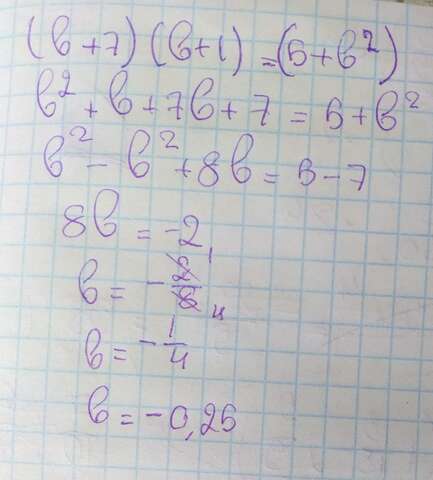 (b+7)(b+1)=(5+b²)
b²+b+7b+7=5+b²
b²-b²+8b=5-7
8b=-2
b=-2/8 1 4
b=-1/4
b=-0,25